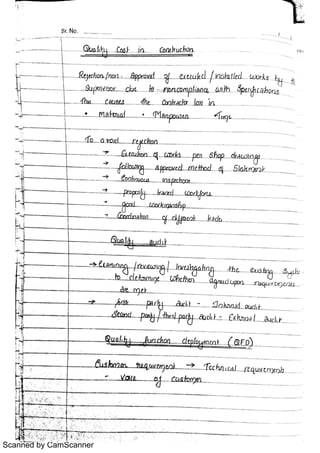 Sr. No.
Quality Cost in Construction
Rejection/non approval of executed/installed works by
Supervisor due to noncompliance with Specifications
This causes the Contractor loss in
• Material • Manpower • Time
To avoid rejection
→ Execution of works per Shop drawings
→ following approved method of Statement
→ Continuous inspection
→ properly trained workforce
→ good workmanship
→ Coordination of different trades
Quality audit
→ Examining/reviewing/Investigating the existing System
to determine whether agreed upon requirements
are met
→ first party audit - Internal audit
Second party/third party audit - External audit
Quality function deployment (QFD)
Customer requirement → Technical requirements
- Voice of customer
Scanned by CamScanner